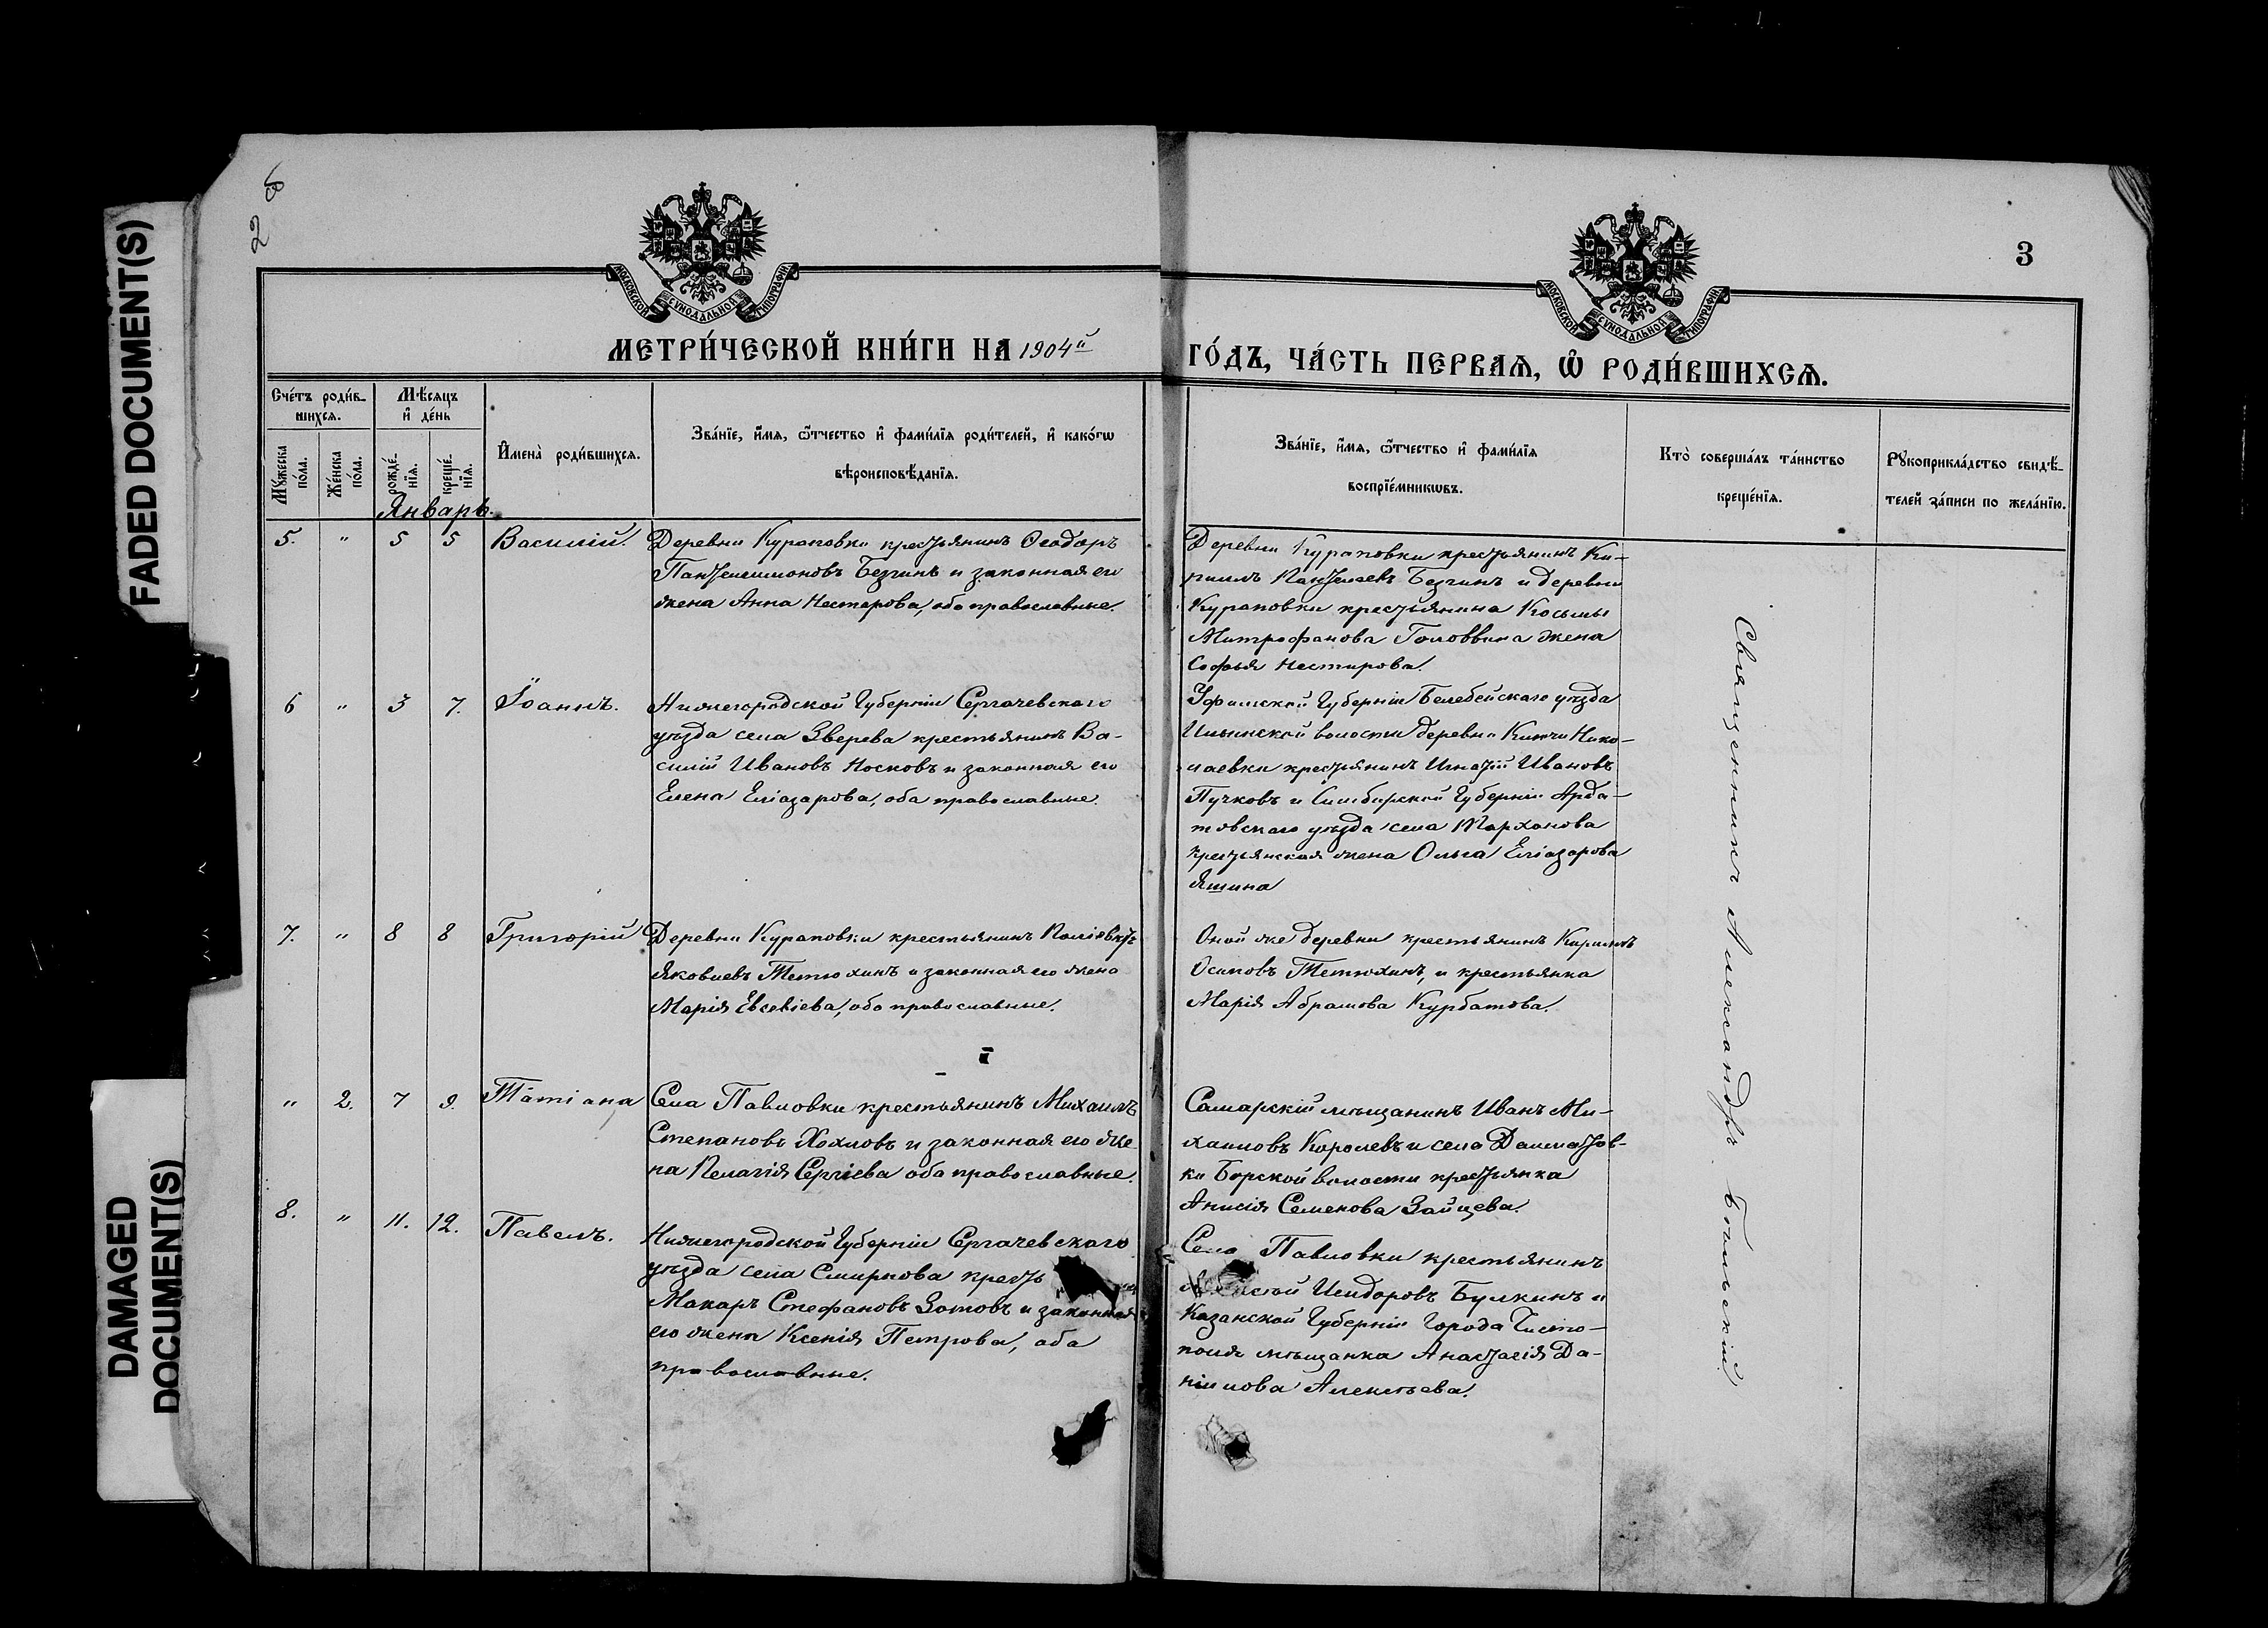 FADED DOCUMENT(S)
DAMAGED
DOCUMENT(S)
2
3
МОСКОВСКОЙ СѴНОДАЛЬНОЙ ТИПОГРАФІИ.
МОСКОВСКОЙ СѴНОДАЛЬНОЙ ТИПОГРАФІИ.
МЕТРИ́ЧЕСКОЙ КНИ́ГИ НА 1904й
ГО́ДЪ, ЧА́СТЬ ПЕРВАѦ, Ѽ РОДИ́ВШИХСѦ.
Сче́тъ роди́в-
шихсѧ.
Мѣ́сѧцъ
и҆ де́нь
Мꙋ́жеска
по́ла.
Же́нска
по́ла.
рожде́-
нїѧ.
креще́-
нїѧ.
И҆мена̀ роди́вшихсѧ.
Зва́нїе, и҆́мѧ, ѻ҆́тчество и҆ фами́лїѧ роди́телей, и҆ како́гѡ
вѣроисповѣ́данїѧ.
Зва́нїе, и҆́мѧ, ѻ҆́тчество и҆ фами́лїѧ
воспрїе́мникѡвъ.
Кто̀ соверша́лъ та́инство
креще́нїѧ.
Рꙋкоприкла́дство свидѣ́-
телей за́писи по жела́нїю.
Январь.
5. " 5 5 Василій.
Деревни Кураповки крестьянинъ Ѳеодоръ
Пантелеимоновъ Безгинъ и законная его
жена Анна Нестерова, оба православные.
Деревни Кураповки крестьянинъ Ки-
риллъ Пантелеевъ Безгинъ и деревни
Кураповки крестьянина Косьмы
Митрофанова Головвина жена
Софья Нестерова.
6 " 3 7. Іоаннъ.
Нижегородской Губерніи Сергачевскаго
уѣзда села Зверева крестьянинъ Ва-
силій Ивановъ Носковъ и законная его
Елена Еліазарова, оба православные.
Уфимской Губерніи Белебейскаго уѣзда
Ильинской волости деревни Нико-
лаевки крестьянинъ Игнатій Ивановъ
Пучковъ и Симбирской Губерніи Арда-
товскаго уѣзда села Тарханова
крестьянская жена Ольга Еліазарова
Яшина
7. " 8 8 Григорій
Деревни Кураповки крестьянинъ Поліевктъ
Яковлевъ Тетюхинъ и законная его жена
Марія Евсевіева, оба православные.
Оной же деревни крестьянинъ Кириллъ
Осиповъ Тетюхинъ, и крестьянка
Марія Абрамова Курбатова.
" 2. 7 9. Татіана
Села Павловки крестьянинъ Михаилъ
Степановъ Хохловъ и законная его же
на Пелагія Сергіева оба православные.
Самарскій мѣщанинъ Иванъ Ми-
хаиловъ Королевъ и села Далматов-
ки Борской волости крестьянка
Анисія Семенова Зайцева.
8. " 11. 12. Павелъ.
Нижегородской Губерніи Сергачевскаго
уѣзда села Смирнова кресть
Макаръ Стефановъ Зотовъ и законная
его жена Ксенія Петрова, оба
православные.
Села Павловки крестьянинъ
Исидоровъ Булкинъ и
Казанской Губерніи города Чисто-
поля мѣщанка Анастасія Да-
ніилова Алексѣева.
Священникъ Александръ Бѣльскій